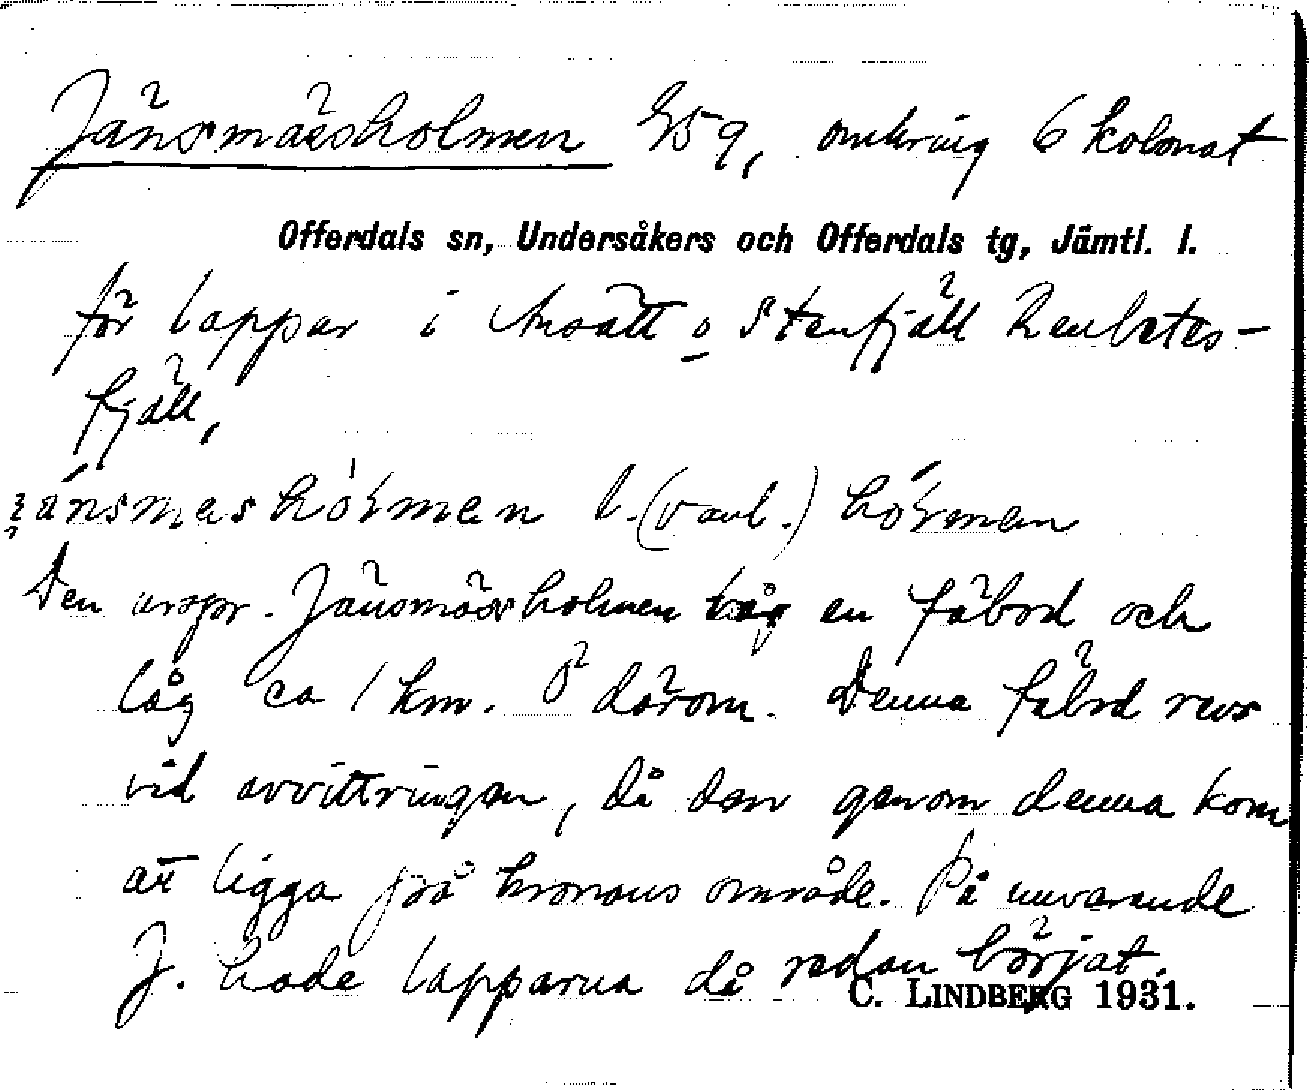 Jänsmässholmen 259, omkring 6 kolonat
Offerdals sn, Undersåkers och Offerdals tg, Jämtl. l.
för lappar i Ansätt o Stenfjäll Renbetes-
fjäll,
jänsmasholmen l. (vanl.) holmen
Den urspr. Jänsmässholmen var en fäbod och
låg ca 1 km. Ö därom. Denna fäbod revs
vid avvittringen, då den genom denna kom
att ligga på kronans område. På nuvarande
J. hade lapparna då redan börjat.
C. LINDBERG 1931.